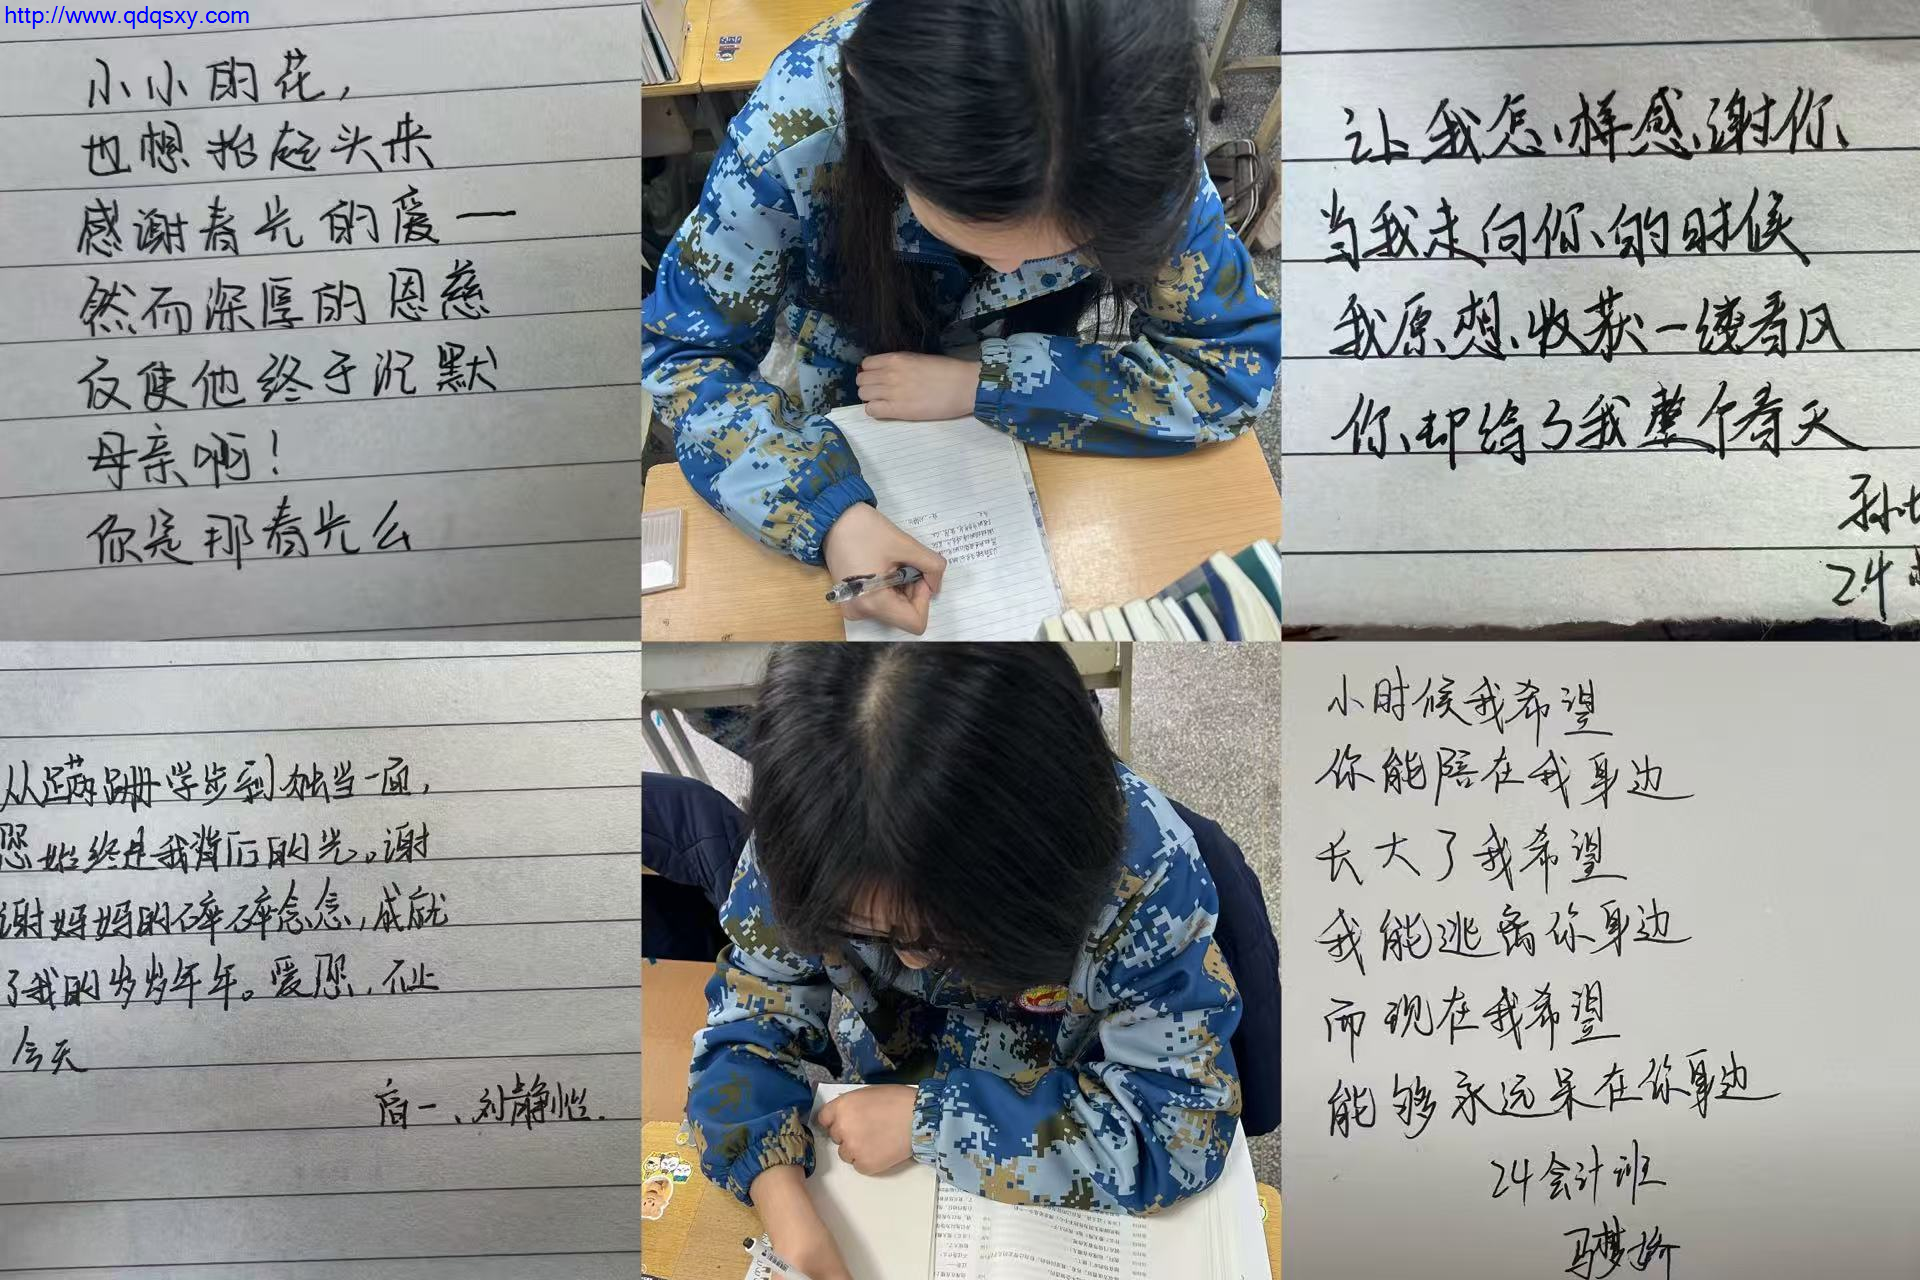 http://www.qdqsxy.com
小小的花，
也想抬起头来
感谢春光的爱一
然而深厚的恩慈
反使他终于沉默
母亲啊！
你是那春光么
让我怎样感谢你
当我走向你的时候
我原想收获一缕春风
你却给了我整个春天
孙
24
从蹒跚学步到独当一面，
您始终是我背后的光。谢
谢妈妈的碎碎念念，成就
了我的岁岁年年。爱您，不止
今天
高一、刘静怡.
小时候我希望
你能陪在我身边
长大了我希望
我能逃离你身边
而现在我希望
能够永远呆在你身边
24会计班
马梦娇